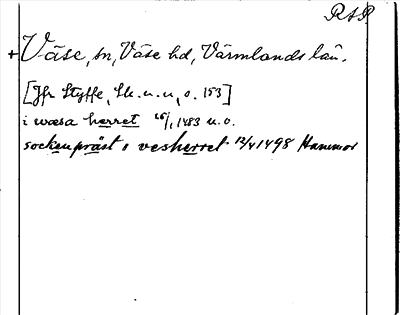 RAP
+ Väse, sn, Väse hd, Värmlands län.
[Jfr Styffe, Sk. u. u, s. 153]
i wæsa herret 26/1 1483 u. o.
sockenpräst i vesherret 12/4 1498 Hammar